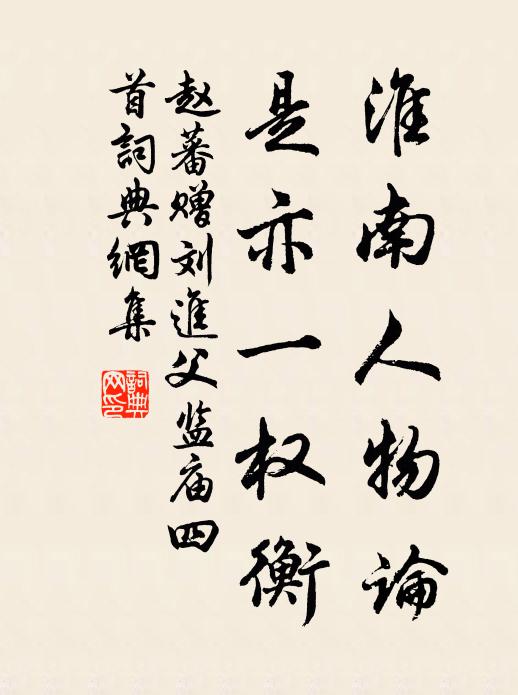 淮南人物論
是亦一权衡
赵蕃赠刘進父监庙四
首詞典網集
詞典
网印